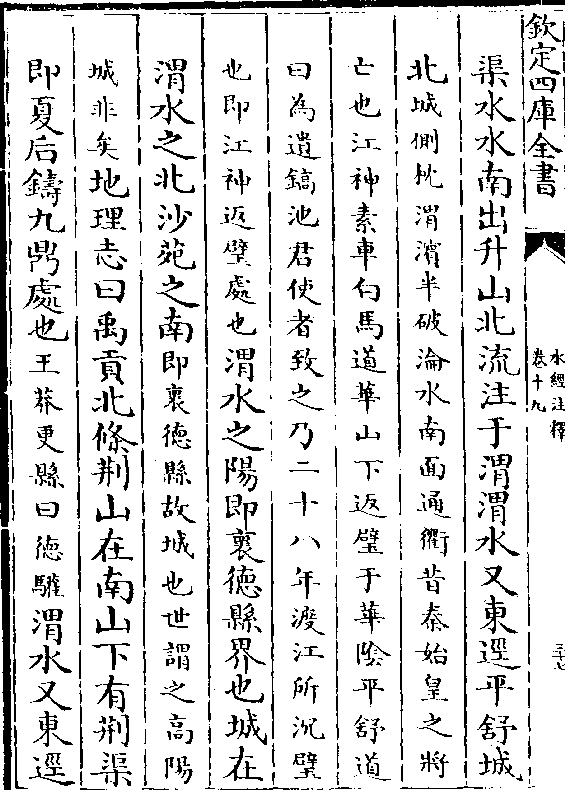 欽定四庫全書
水經注釋
卷十九
三十七
渠水水南出升山北流注于渭渭水又東逕平舒城
北城側枕渭濱半破淪水南面通衢昔秦始皇之將
亡也江神素車白馬道華山下返璧于華隂平舒道
曰為遺鎬池君使者致之乃二十八年渡江所沉璧
也即江神返璧處也渭水之陽即褱德縣界也城在
渭水之北沙苑之南即褱德縣故城也世謂之高陽
城非矣地理志曰禹貢北條荆山在南山下有荆渠
即夏后鑄九鼎處也王莽更縣曰徳驩渭水又東逕